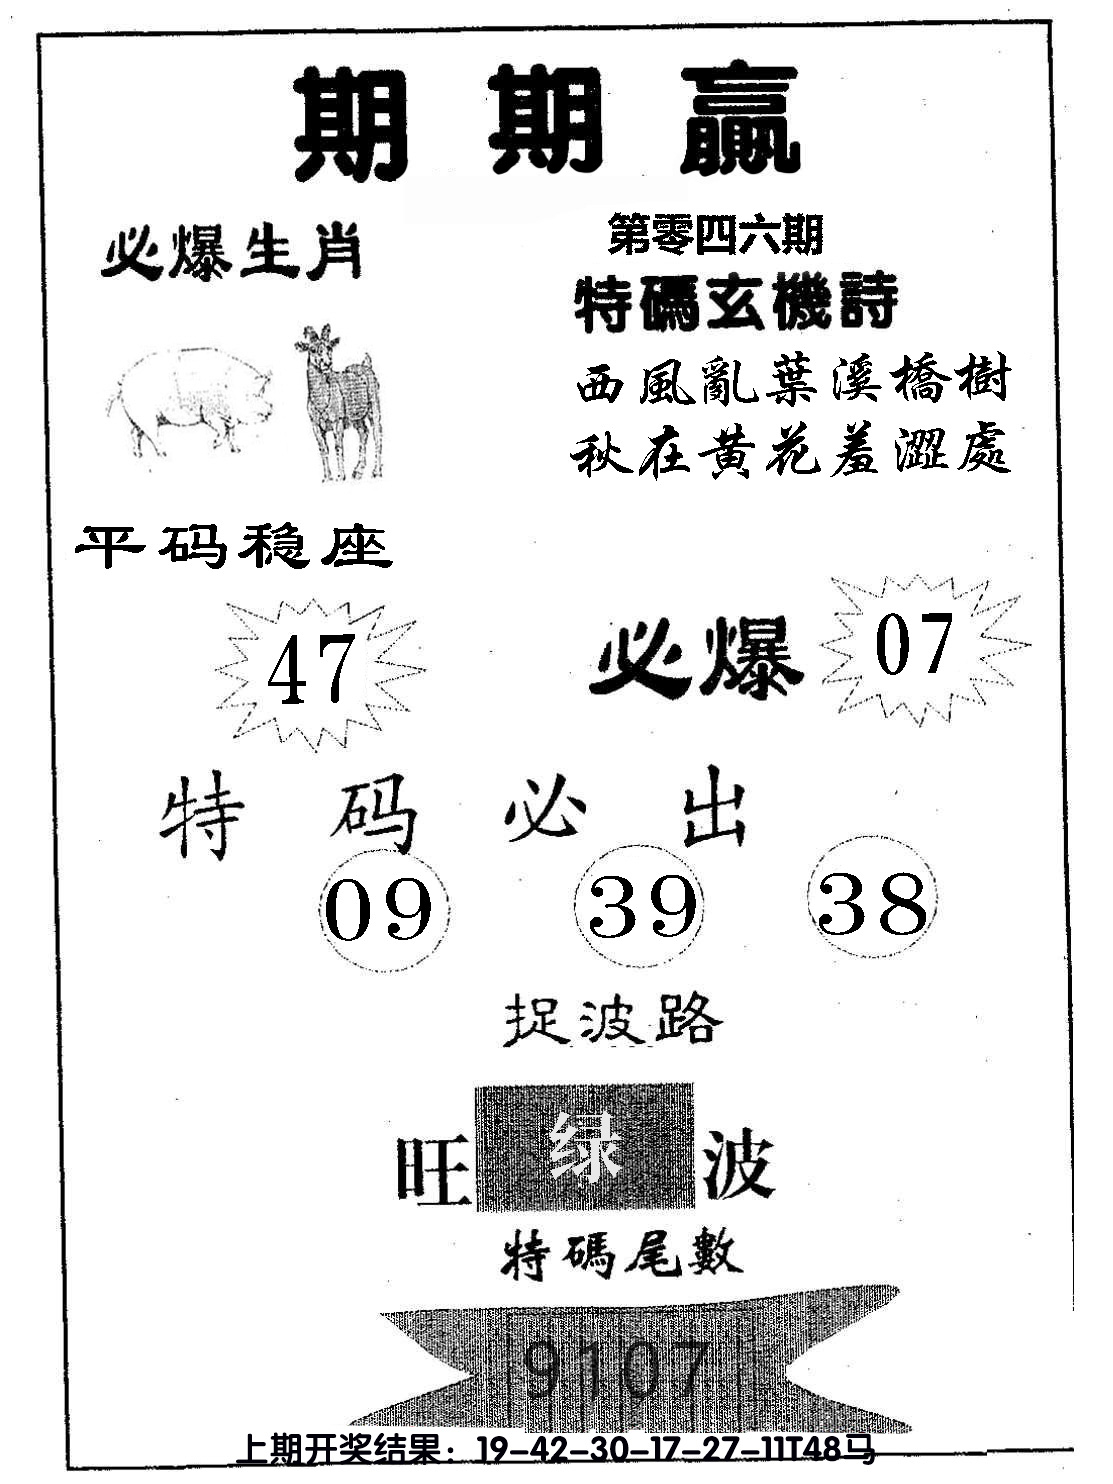 期期赢
必爆生肖
第零四六期
特碼玄機詩
西風亂葉溪橋樹
秋在黄花羞澀處
平码稳座
47
必爆 07
特码必出
09 39 38
捉波路
旺 绿 波
特碼尾數
9107
上期开奖结果：19-42-30-17-27-11T48马